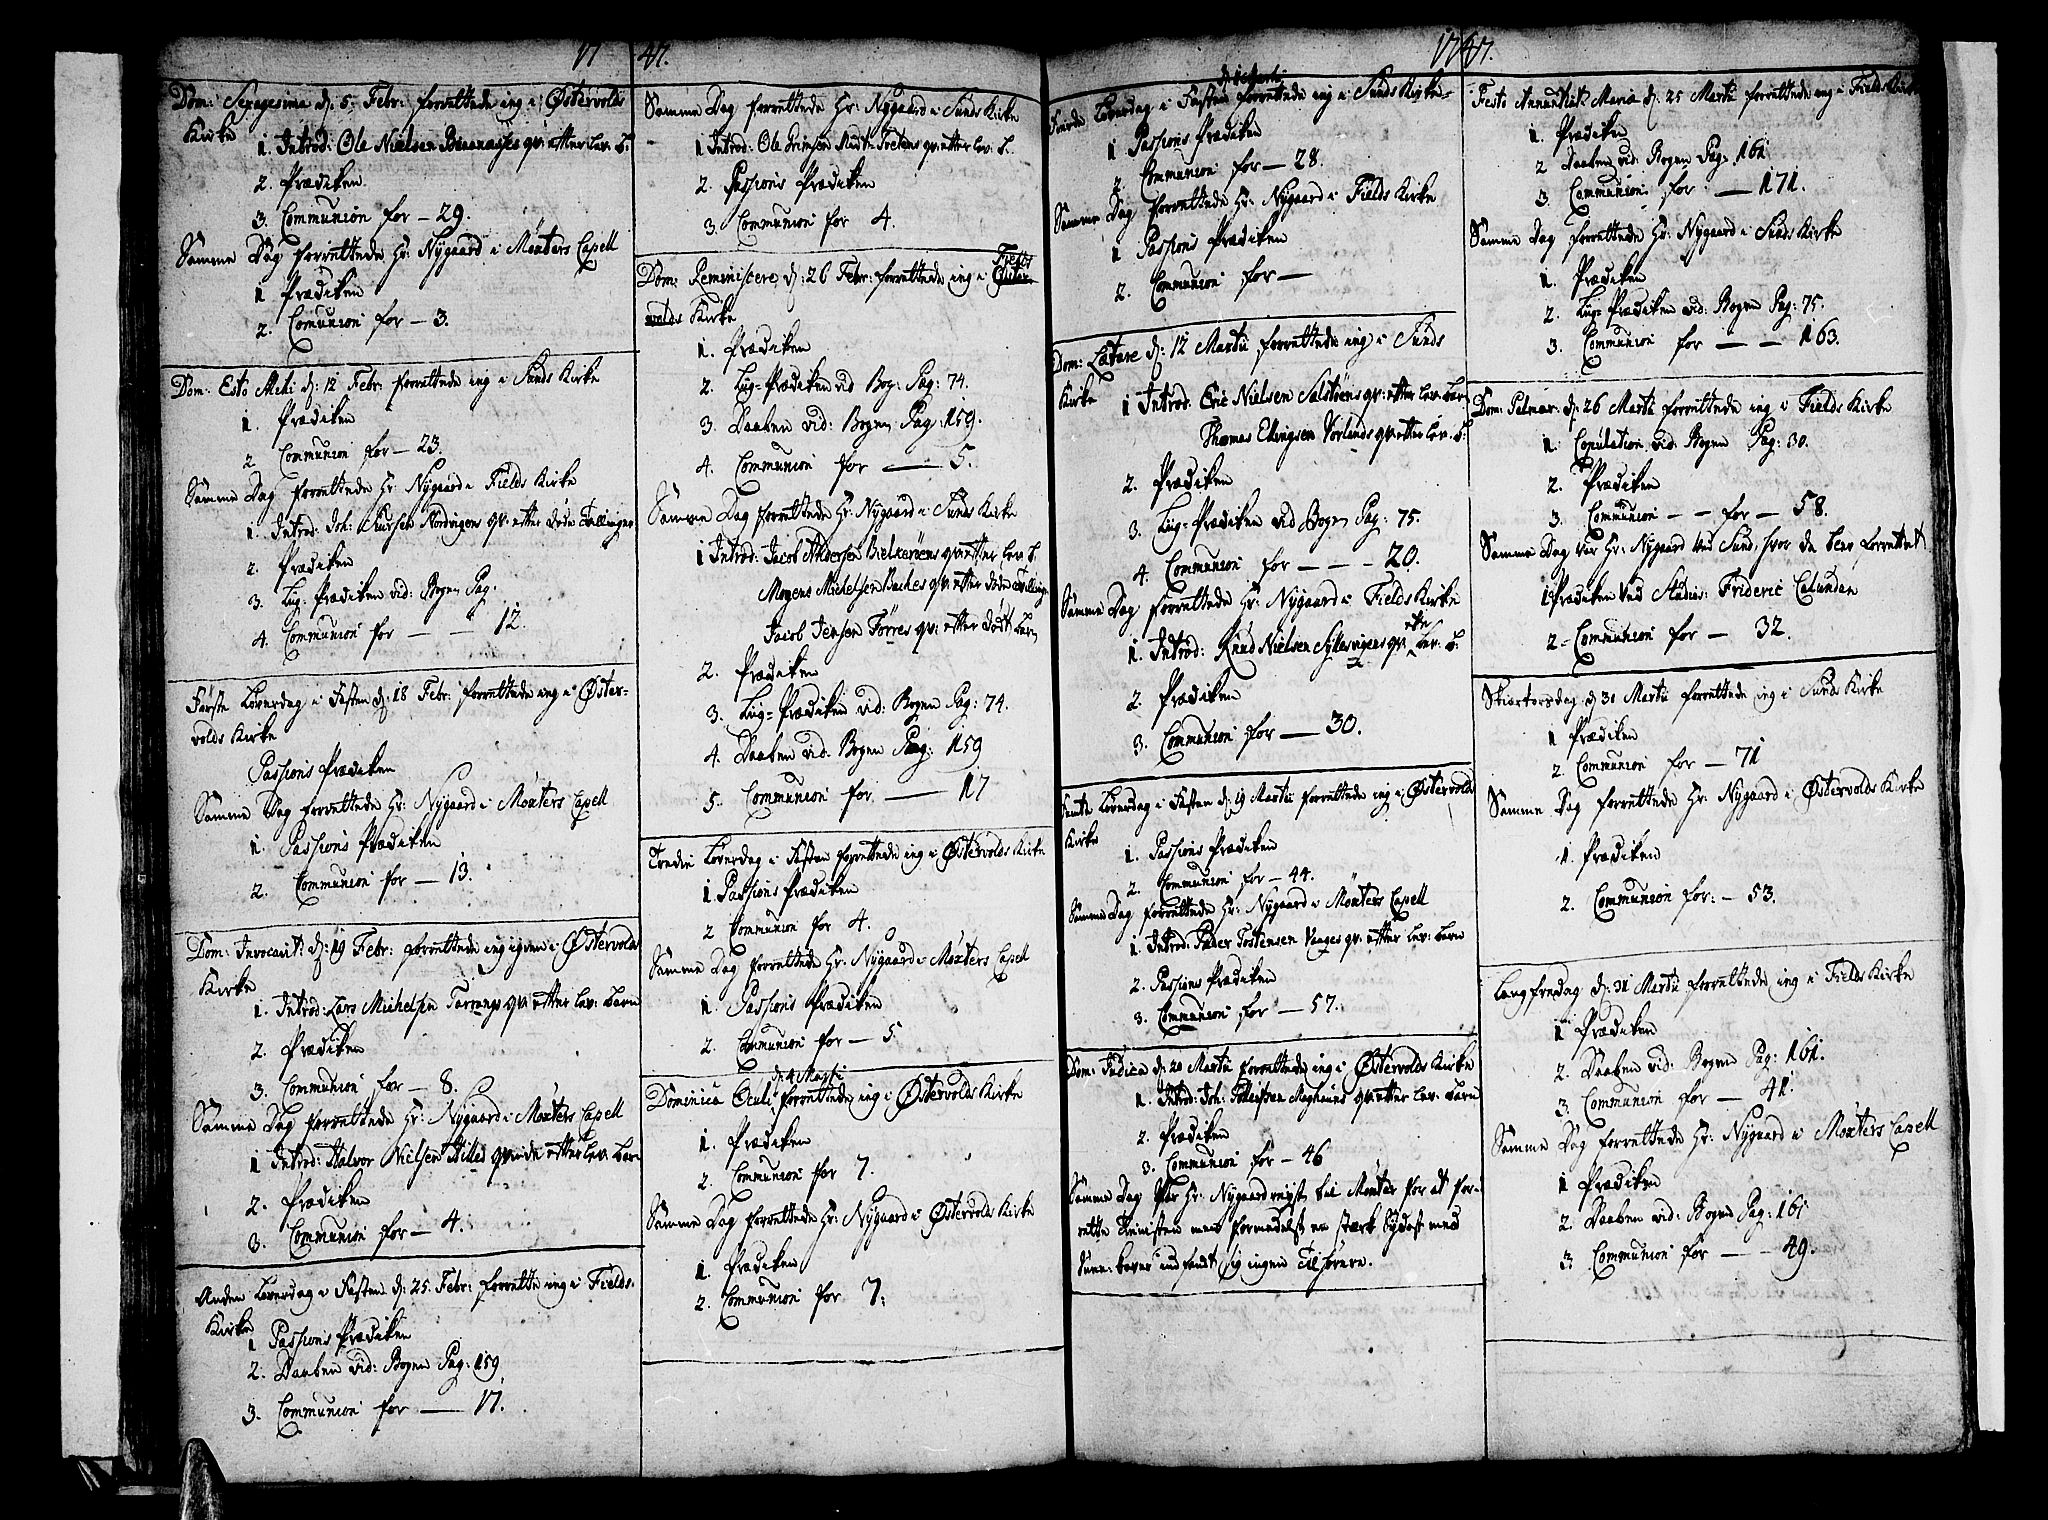 17 47.
Dom: Sexagesima d: 5. Febr: forrettede ieg i Østervolds
Kirke
1. Introd: Ole Nielsen qv: efter lev: B.
2. Prædiken
3. Communion for – 29.
Samme Dag forrettede Hr: Nygaard i Møxters Capell
1 Prædiken
2. Comunion for – 3.
Dom: Esto Mihi d: 12 Febr: forrettede ieg i Sunds Kirke
1. Prædiken
2 Communion for – 23.
Samme Dag forrettede Hr: Nygaard i Fields Kirke
1. Introd: Joh: Nordvigens qv: efter døde Tvillinger
2. Prædiken
3. Liig-Prædiken vid: Bogen Pag:
4. Communion for — — 12.
Første Løverdag i Fasten d: 18 Febr: forrettede ieg i Øster-
volds Kirke
Passions Prædiken
Samme Dag forrettede Hr: Nygaard i Møxters Capell
1. Passions Prædiken
2. Communion for — 13.
Dom: Invocavit: d: 19 Febr: forrettede ieg igien i Østervolds
Kirke
1. Introd: Lars Michelsen qv: efter lev: Barn
2. Prædiken
3. Communion for – 8.
Samme Dag forrettede Hr: Nygaard i Møxters Capell
1 Introd: Halvor Nielsen Hilles qvinde efter lev: Barn
2. Prædiken
3. Communion for – 4.
Anden Løverdag i Fasten d: 25. Febr: forrettede ieg i Fields
Kirke
1 Passions Prædiken
2. Daaben vid: Bogen Pag: 159
3. Communion for — 17.
Samme Dag forrettede Hr: Nygaard i Sunds Kirke
1 Introd: Ole qv: efter lev: B.
2. Passions Prædiken
3. Communion for 4.
Fields
Dom: Reminiscere d: 26 Febr: forrettede ieg i Øster-
volds Kirke
1. Prædiken
2. Liig-Prædiken vid Bog: Pag: 74.
3. Daaben vid: Bogen Pag: 159.
4. Communion for — 5.
Samme Dag forrettede Hr: Nygaard i Sunds Kirke
1 Introd: Jacob Andersen Bielkerøens qv: efter lev: B.
Mogens Michelsen Backes qv: efter døde Tvillinger
Jacob Jensen Tørres qv: efter dødt Barn
2. Prædiken
3. Liig-Prædiken vid: Bogen Pag: 74.
4. Daaben vid: Bogen Pag: 159
5. Communion for — 17
Tredie Løverdag i Fasten forrettede ieg i Østervolds Kirke
1. Passions Prædiken
2 Communion for 4.
Samme Dag forrettede Hr: Nygaard i Møxters Capell
1. Passions Prædiken
2. Communion for – 5.
d: 4 Marti
Dominica Oculi forrettede ieg i Østervolds Kirke
1. Prædiken
2. Communion for 7.
Samme Dag forrettede Hr: Nygaard i Østervolds Kirke
1. Prædiken
2. Communion for 7.
1747.
Fierde Løverdag i Fasten forrettede ieg i Sunds Kirke
1 Passions Prædiken
2. Communion for — 28.
Samme Dag forrettede Hr: Nygaard i Fields Kirke
1 Passions Prædiken
2. Communion for —
Dom: Lætare d: 12 Martii forrettede ieg i Sunds
Kirke
1 Introd: Eric Nielsen qv: efter lev: Barn
Thomas Ellingsen Vorlands qv: efter lev: B:
2. Prædiken
3. Liig-Prædiken vid Bogen Pag: 75.
4. Communion for — — – 20.
Samme Dag forrettede Hr: Nygaard i Fields Kirke
1. Introd: Knud Nielsen qv: efter lev: B:
2. Prædiken
3. Communion for — 30.
Femte Løverdag i Fasten d: 19 Martii forrettede ieg i Østervolds
Kirke
1. Passions Prædiken
2. Communion for – 44.
Samme Dag forrettede Hr: Nygaard i Møxters Capell
1. Introd: Peder Tostensen qv: efter lev: Barn
2. Passions Prædiken
3. Communion for – 57.
Dom: Judica d: 20 Martii forrettede ieg i Østervolds Kirke
1. Introd: Joh: qv: efter lev: Barn
2. Prædiken
3. Communion for – 46
Samme Dag var Hr: Nygaard reyst til Møxter for at for-
rette Tienisten men formedelst en stærk Sydost med
indfandt sig ingen Tilhørere.
Festo Annunciat: Mariæ d: 25 Martii forrettede ieg i Fields Kirke
1. Prædiken
2 Daaben vid: Bogen Pag: 161
3 Communion for — 171.
Samme Dag forrettede Hr: Nygaard i Sunds Kirke
1. Prædiken
2. Liig-Prædiken vid: Bogen Pag: 75.
3. Communion for — — 163.
Dom: Palmar: d: 26 Martii forrettede ieg i Fields Kirke
1. Copulation vid: Bogen Pag: 30.
2. Prædiken
3. Communion — – for – 58.
Samme Dag var Hr: Nygaard ved Sund, hvor da blev forrettet
1 Prædiken ved Studios: Frideric Calundan
2 - Communion for – 32.
Skiærtorsdag d 30 Martii forrettede ieg i Sunds Kirke
1 Prædiken
2. Communion for – 71
Samme Dag forrettede Hr: Nygaard i Østervolds Kirke
1. Prædiken
2. Communion for: – 53.
Langfredag d: 31 Martii forrettede ieg i Fields Kirke
1 Prædiken
2. Daaben vid: Bogen Pag: 161.
3. Communion for – 41
Samme Dag forrettede Hr: Nygaard i Møxters Capell
1 Prædiken
2. Daaben vid: Bogen Pag: 161
3 Communion for — 49.